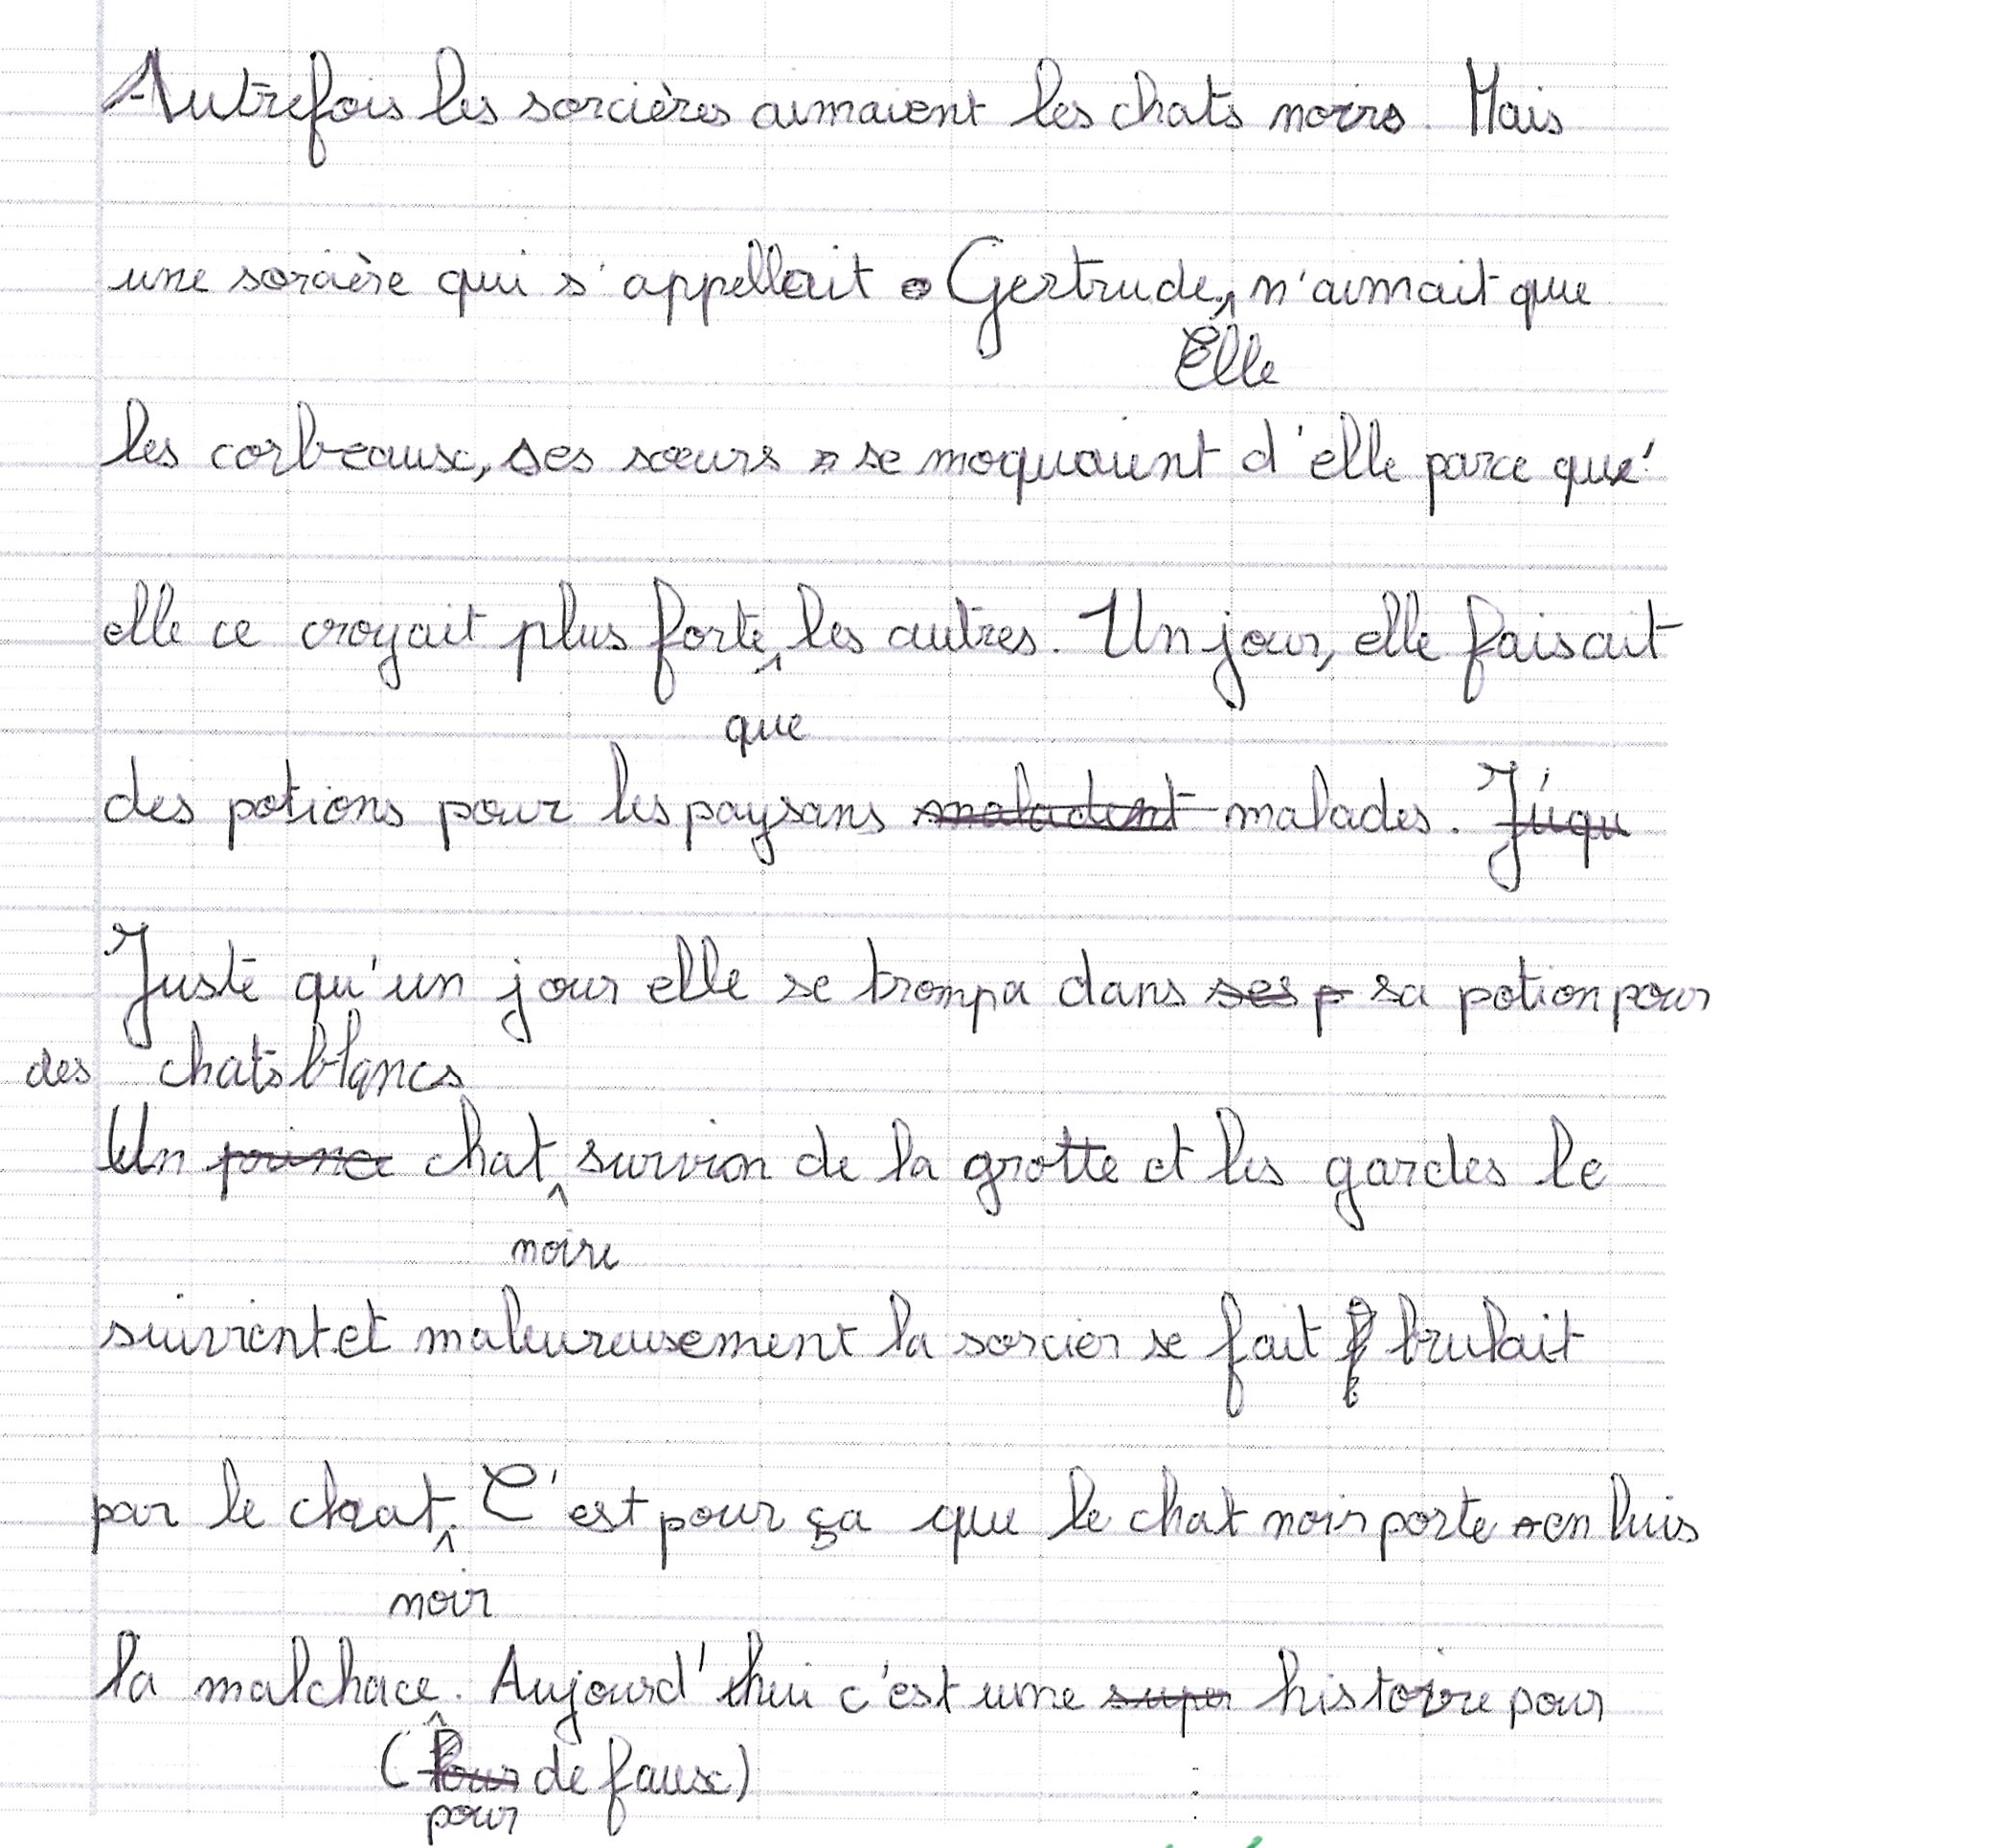 Autrefois les sorcières aimaient les chats noirs. Mais
une sorcière qui s'appellait Gertrude, n'aimait que
Elle
les corbeaux, ses sœurs se moquaient d'elle parce que'
elle ce croyait plus forte les autres. Un jour, elle faisait
que
des potions pour les paysans maladent malades. Júqu
Juste qu'un jour elle se trompa dans ses p sa potion pour
des chats blancs
Un chat survion de la grotte et les gardes le
noire
suivrent et maleureusement la sorcier se fait brulait
par le chat. C'est pour ça que le chat noir porte en luis
noir
la malchace. Aujourd'hui c'est une super histoire pour
(Pour de faux)
pour